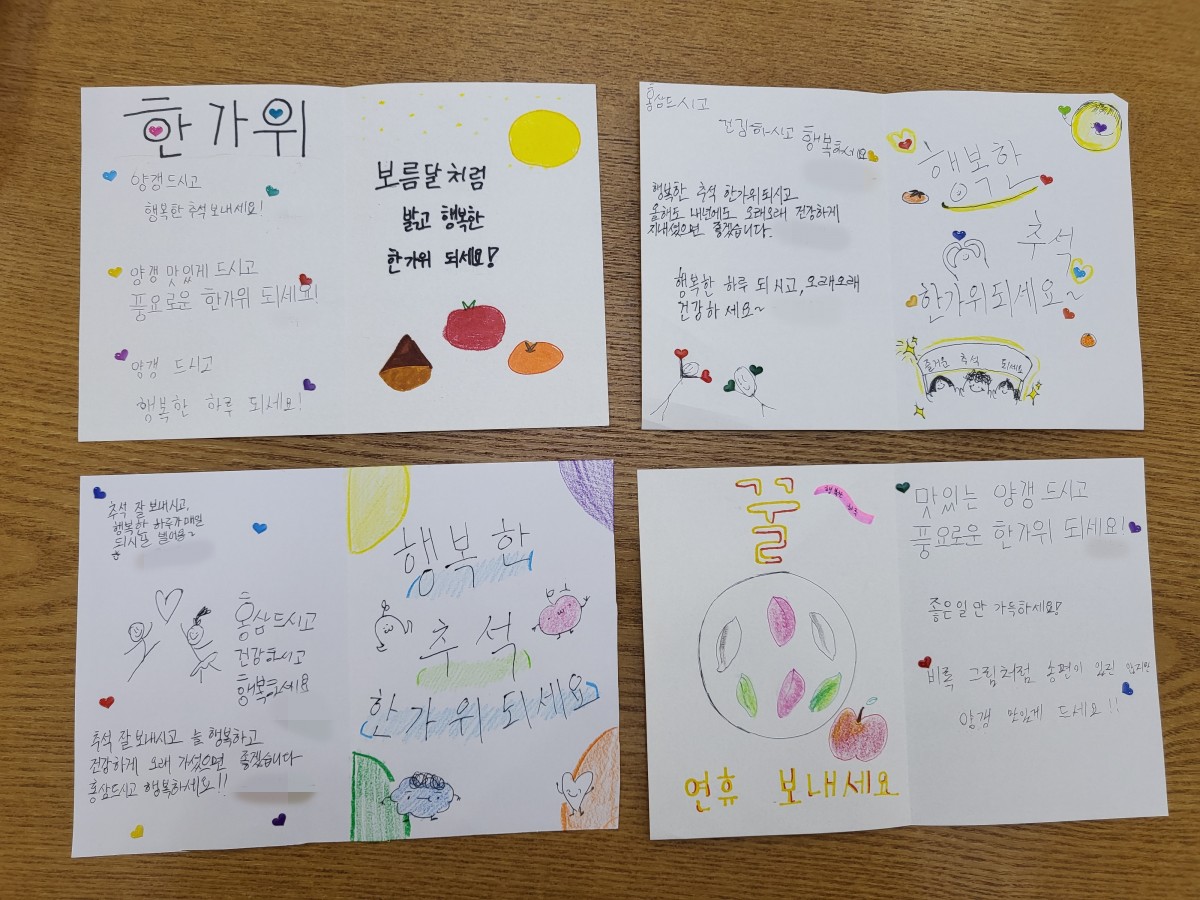 한가위
양갱드시고
행복한 추석 보내세요!
양갱 맛있게 드시고
풍요로운 한가위 되세요!
양갱 드시고
행복한 하루 되세요!
보름달처럼
밝고 행복한
한가위 되세요!
홍삼드시고
건강하시고 행복하세요
행복한 추석 한가위되시고
올해도 내년에도 오래오래 건강하게
지내셨으면 좋겠습니다.
행복한 하루 되시고, 오래오래
건강하세요~
행복한
추석
한가위되세요~
즐거운 추석 되세요
추석 잘 보내시고,
행복한 하루가 매일
되시길 빌어요~
홍삼드시고
건강하시고
행복하세요
추석 잘 보내시고 늘 행복하고
건강하게 오래 가셨으면 좋겠습니다
홍삼드시고 행복하세요!!
행복한
추석
한가위되세요
꿀
행복한
연휴 보내세요
맛있는 양갱드시고
풍요로운 한가위 되세요!
좋은일만 가득하세요!
비록 그림처럼 송편이 있진 않지만
양갱 맛있게 드세요!!